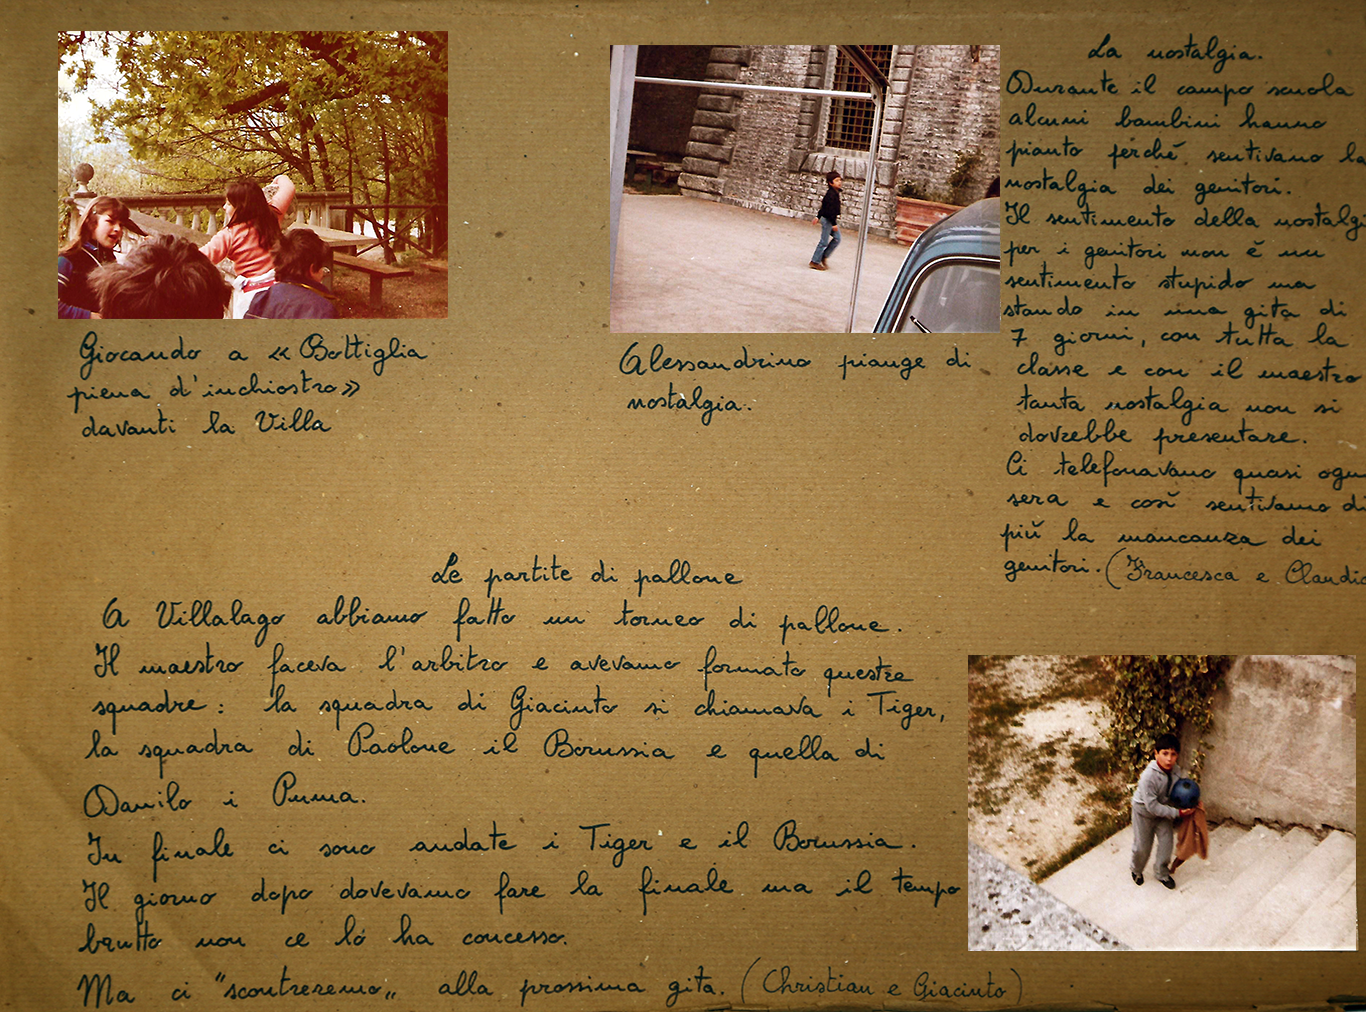 Giocando a « Bottiglia
piena d'inchiostro»
davanti la Villa
Alessandrino piange di
nostalgia.
La nostalgia.
Durante il campo scuola
alcuni bambini hanno
pianto perchè sentivano la
nostalgia dei genitori.
Il sentimento della nostalgi
per i genitori non è un
sentimento stupido ma
stando in una gita di
7 giorni, con tutta la
classe e con il maestro
tanta nostalgia non si
dovrebbe presentare.
Ci telefonavano quasi ogn
sera e così sentivamo di
più la mancanza dei
genitori. (Francesca e Claudio
Le partite di pallone
A Villalago abbiamo fatto un torneo di pallone.
Il maestro faceva l'arbitro e avevamo formato queste
squadre: la squadra di Giacinto si chiamava i Tiger,
la squadra di Paolone il Borussia e quella di
Danilo i Puma.
In finale ci sono andate i Tiger e il Borussia.
Il giorno dopo dovevamo fare la finale ma il tempo
brutto non ce lò ha concesso.
Ma ci "scontreremo„ alla prossima gita. (Christian e Giacinto)